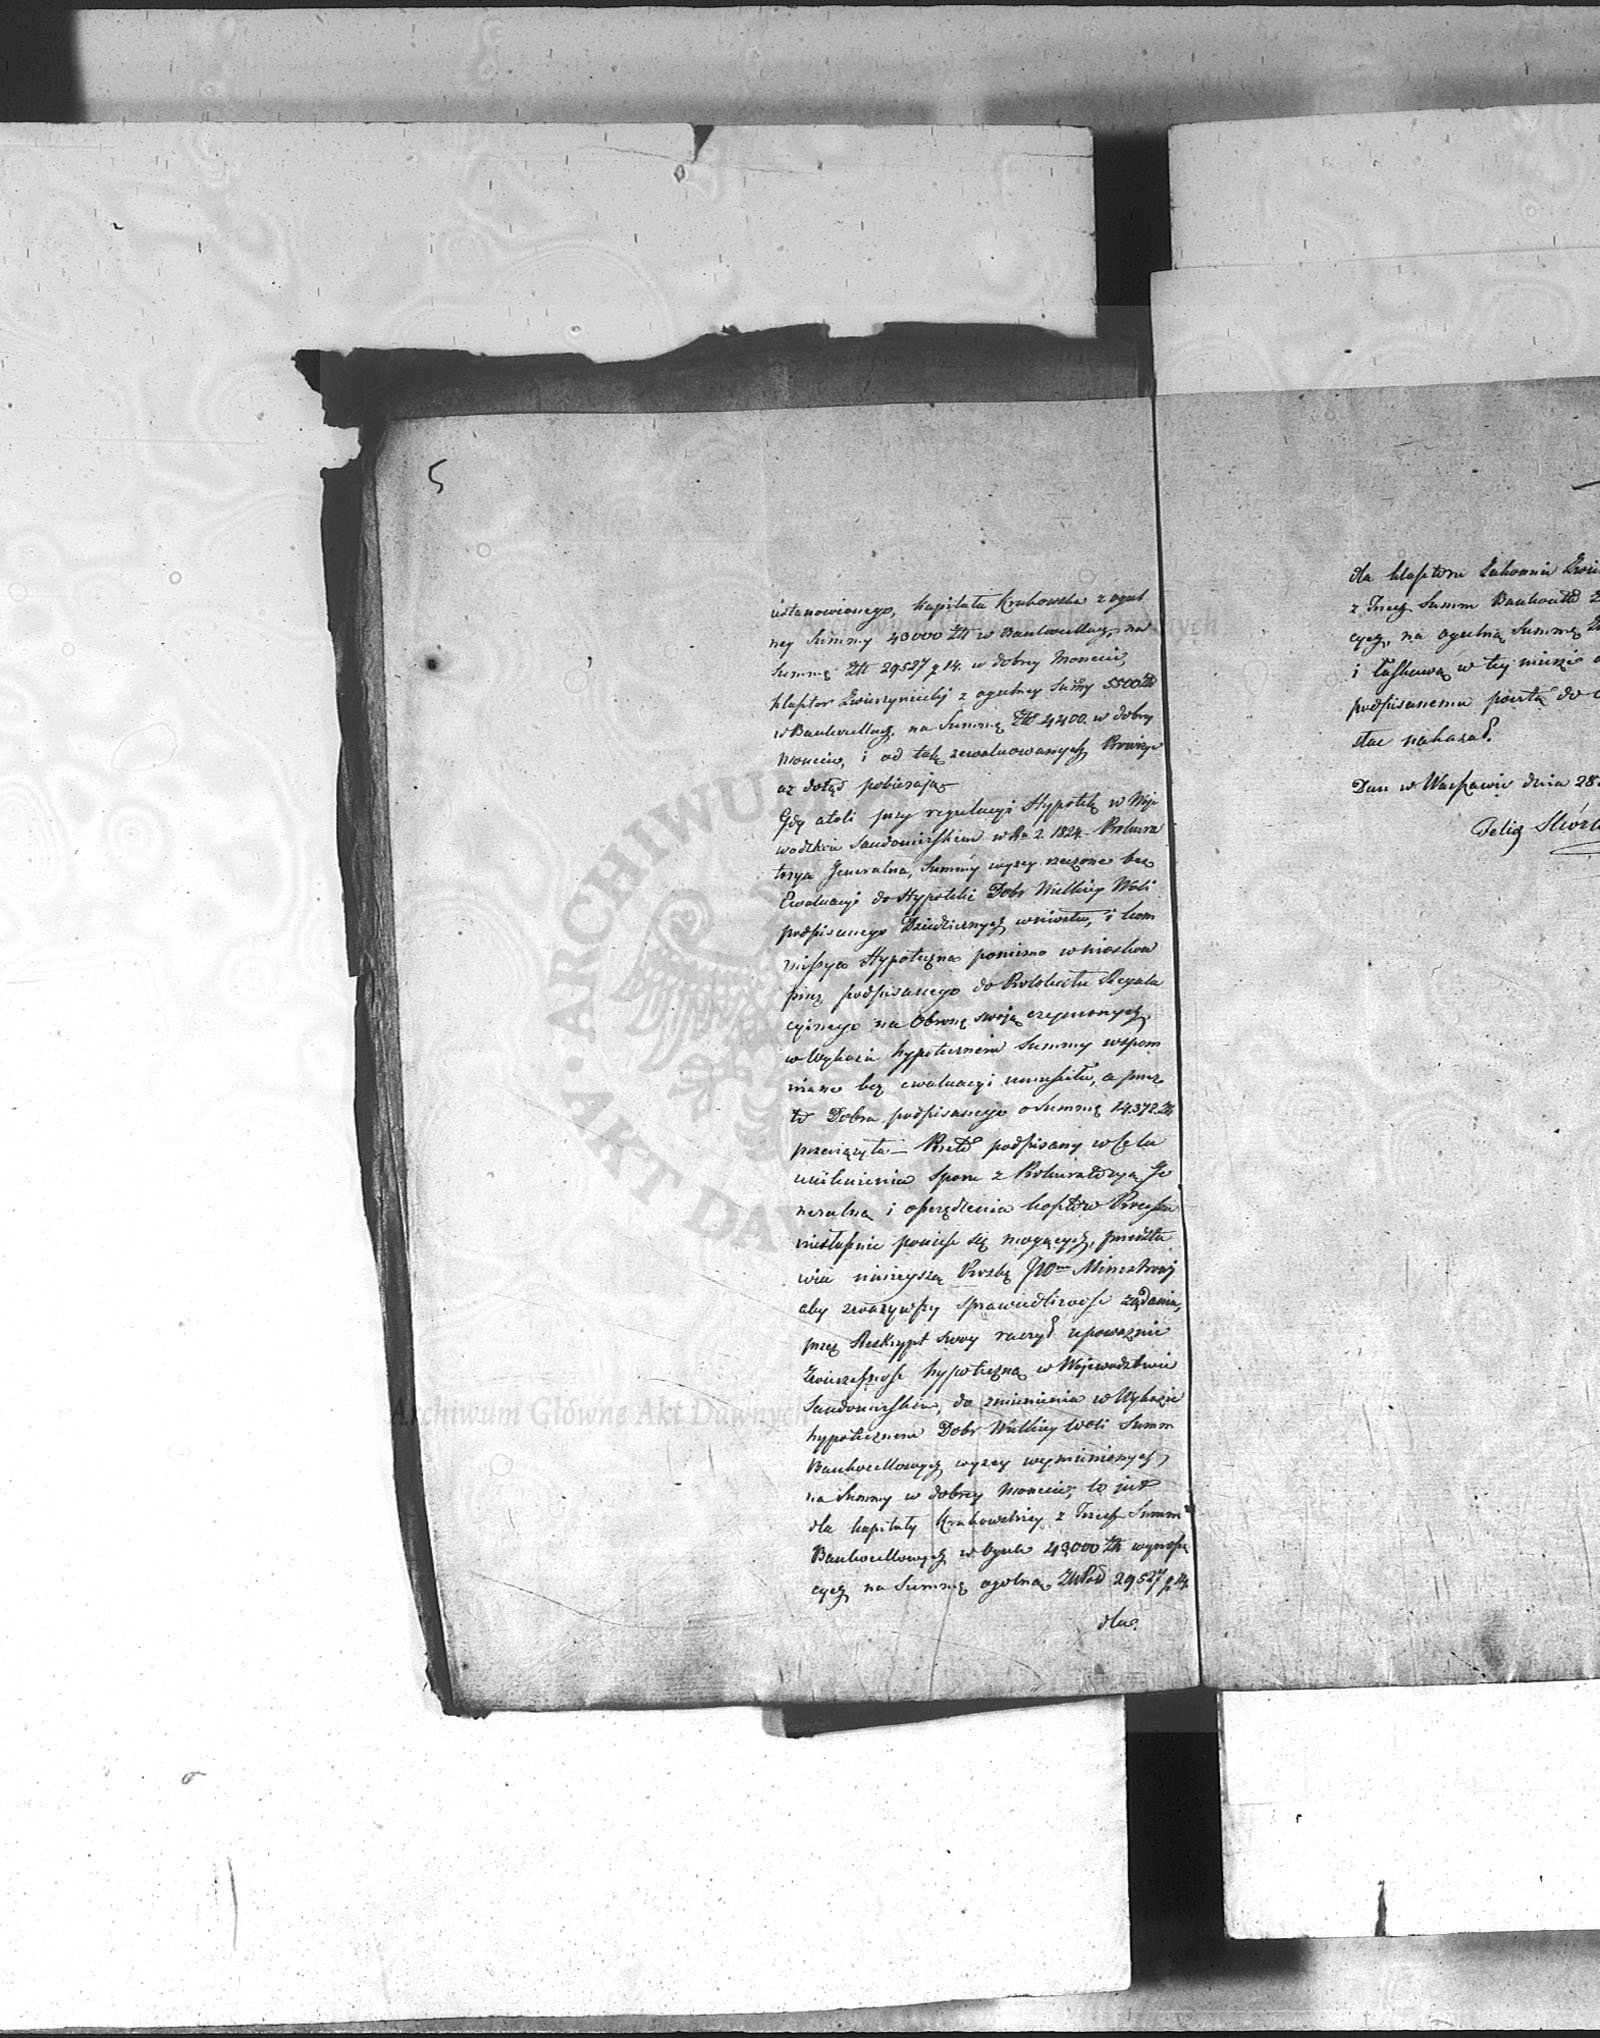 5
ustanowionego, Kapituła Krakowska z ogul
ney Summy 43000 Złł w Bankocetlach na
Summę Złł 29527 g 14. w dobrey Monecie,
Klasztor Zwierzyniecki z ogulney Summy 5500 Złł
w Bankocetlach na Summę Złł 4400. w dobrey
Monecie, i od tak zewaluowanych Prowizye
aż dotąd pobierają
Gdy atoli przy regulacyi Hypotek w Woje
wodztwie Sandomirskiem w Ru 1824. Prokura
torya Generalna, Summy wyzey rzeczone bez
Ewaluacyi do Hypoteki Dobr Wielkiey Woli
podpisanego Dziedzicznych wniosła, i Kom
missya Hypoteczna pomimo wniosków
przez podpisanego do Protokułu Regula
cyinego na Obronę swoją czynionych,
w Wykazie hypotecznem Summy wspom
niane bez ewaluacyi umieściła, a przez
to Dobra podpisanego o Summę 14.372. Złł
przeciążyła — Przeto podpisany w Celu
uniknienia Sporu z Prokuratoryą Ge
neralną i oszczędzenia kosztów Processu
niesłusznie ponieść się mogących, przedsta
wia nininieyszą Prozbę JWmu Ministrowi
aby zważywszy sprawiedliwość żądania,
przez Reskrypt swoy raczył upoważnić
Zwierzchność hypoteczną w Województwie
Sandomirskiem, do zmienienia w Wykazie
hypotecznem Dobr Wielkiey Woli Summ
Bankocetlowych wyzey wymienionych
na Summy w dobrey Monecie; to jest
dla Kapituły Krakowskiey z Trzech Summ
Bankocetlowych w Ogule 43,000 Złł wynoszą
cych na Summę ogolną Złłpol 29527 g 14.
dla
dla Klasztoru Zakonnic
z Trzech Summ
cych, na ogulną Summę
i łaskawą w tey mierze
podpisanemu pocztą do
słać nakazał.
Dan w Warszawie dnia 28
Felix
Archiwum Główne Akt Dawnych
ARCHIWUM
AKT DAWNYCH
Archiwum Główne Akt Dawnych